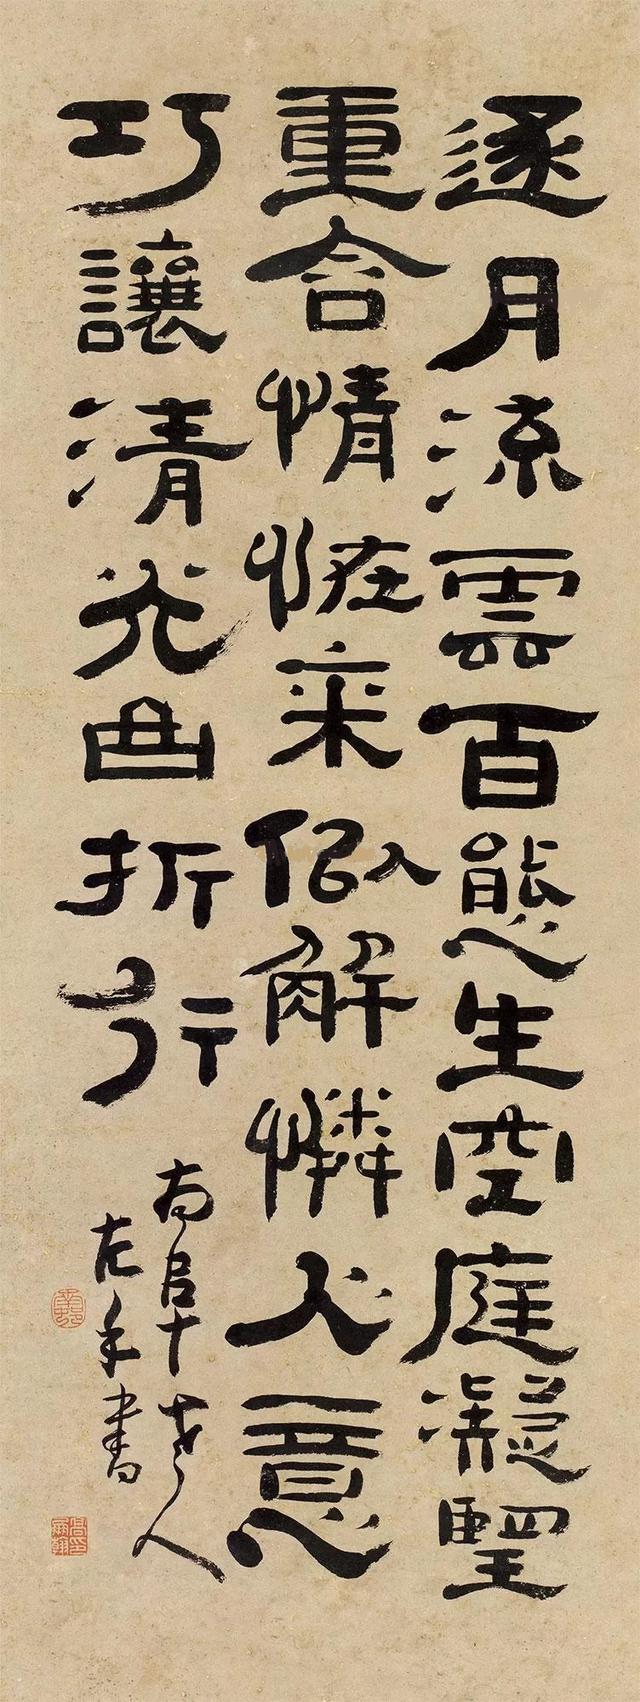 逐月流雲百態生空庭凝望
重含情恠来似解憐人意
巧讓清光曲折行
南阜老人
左手書